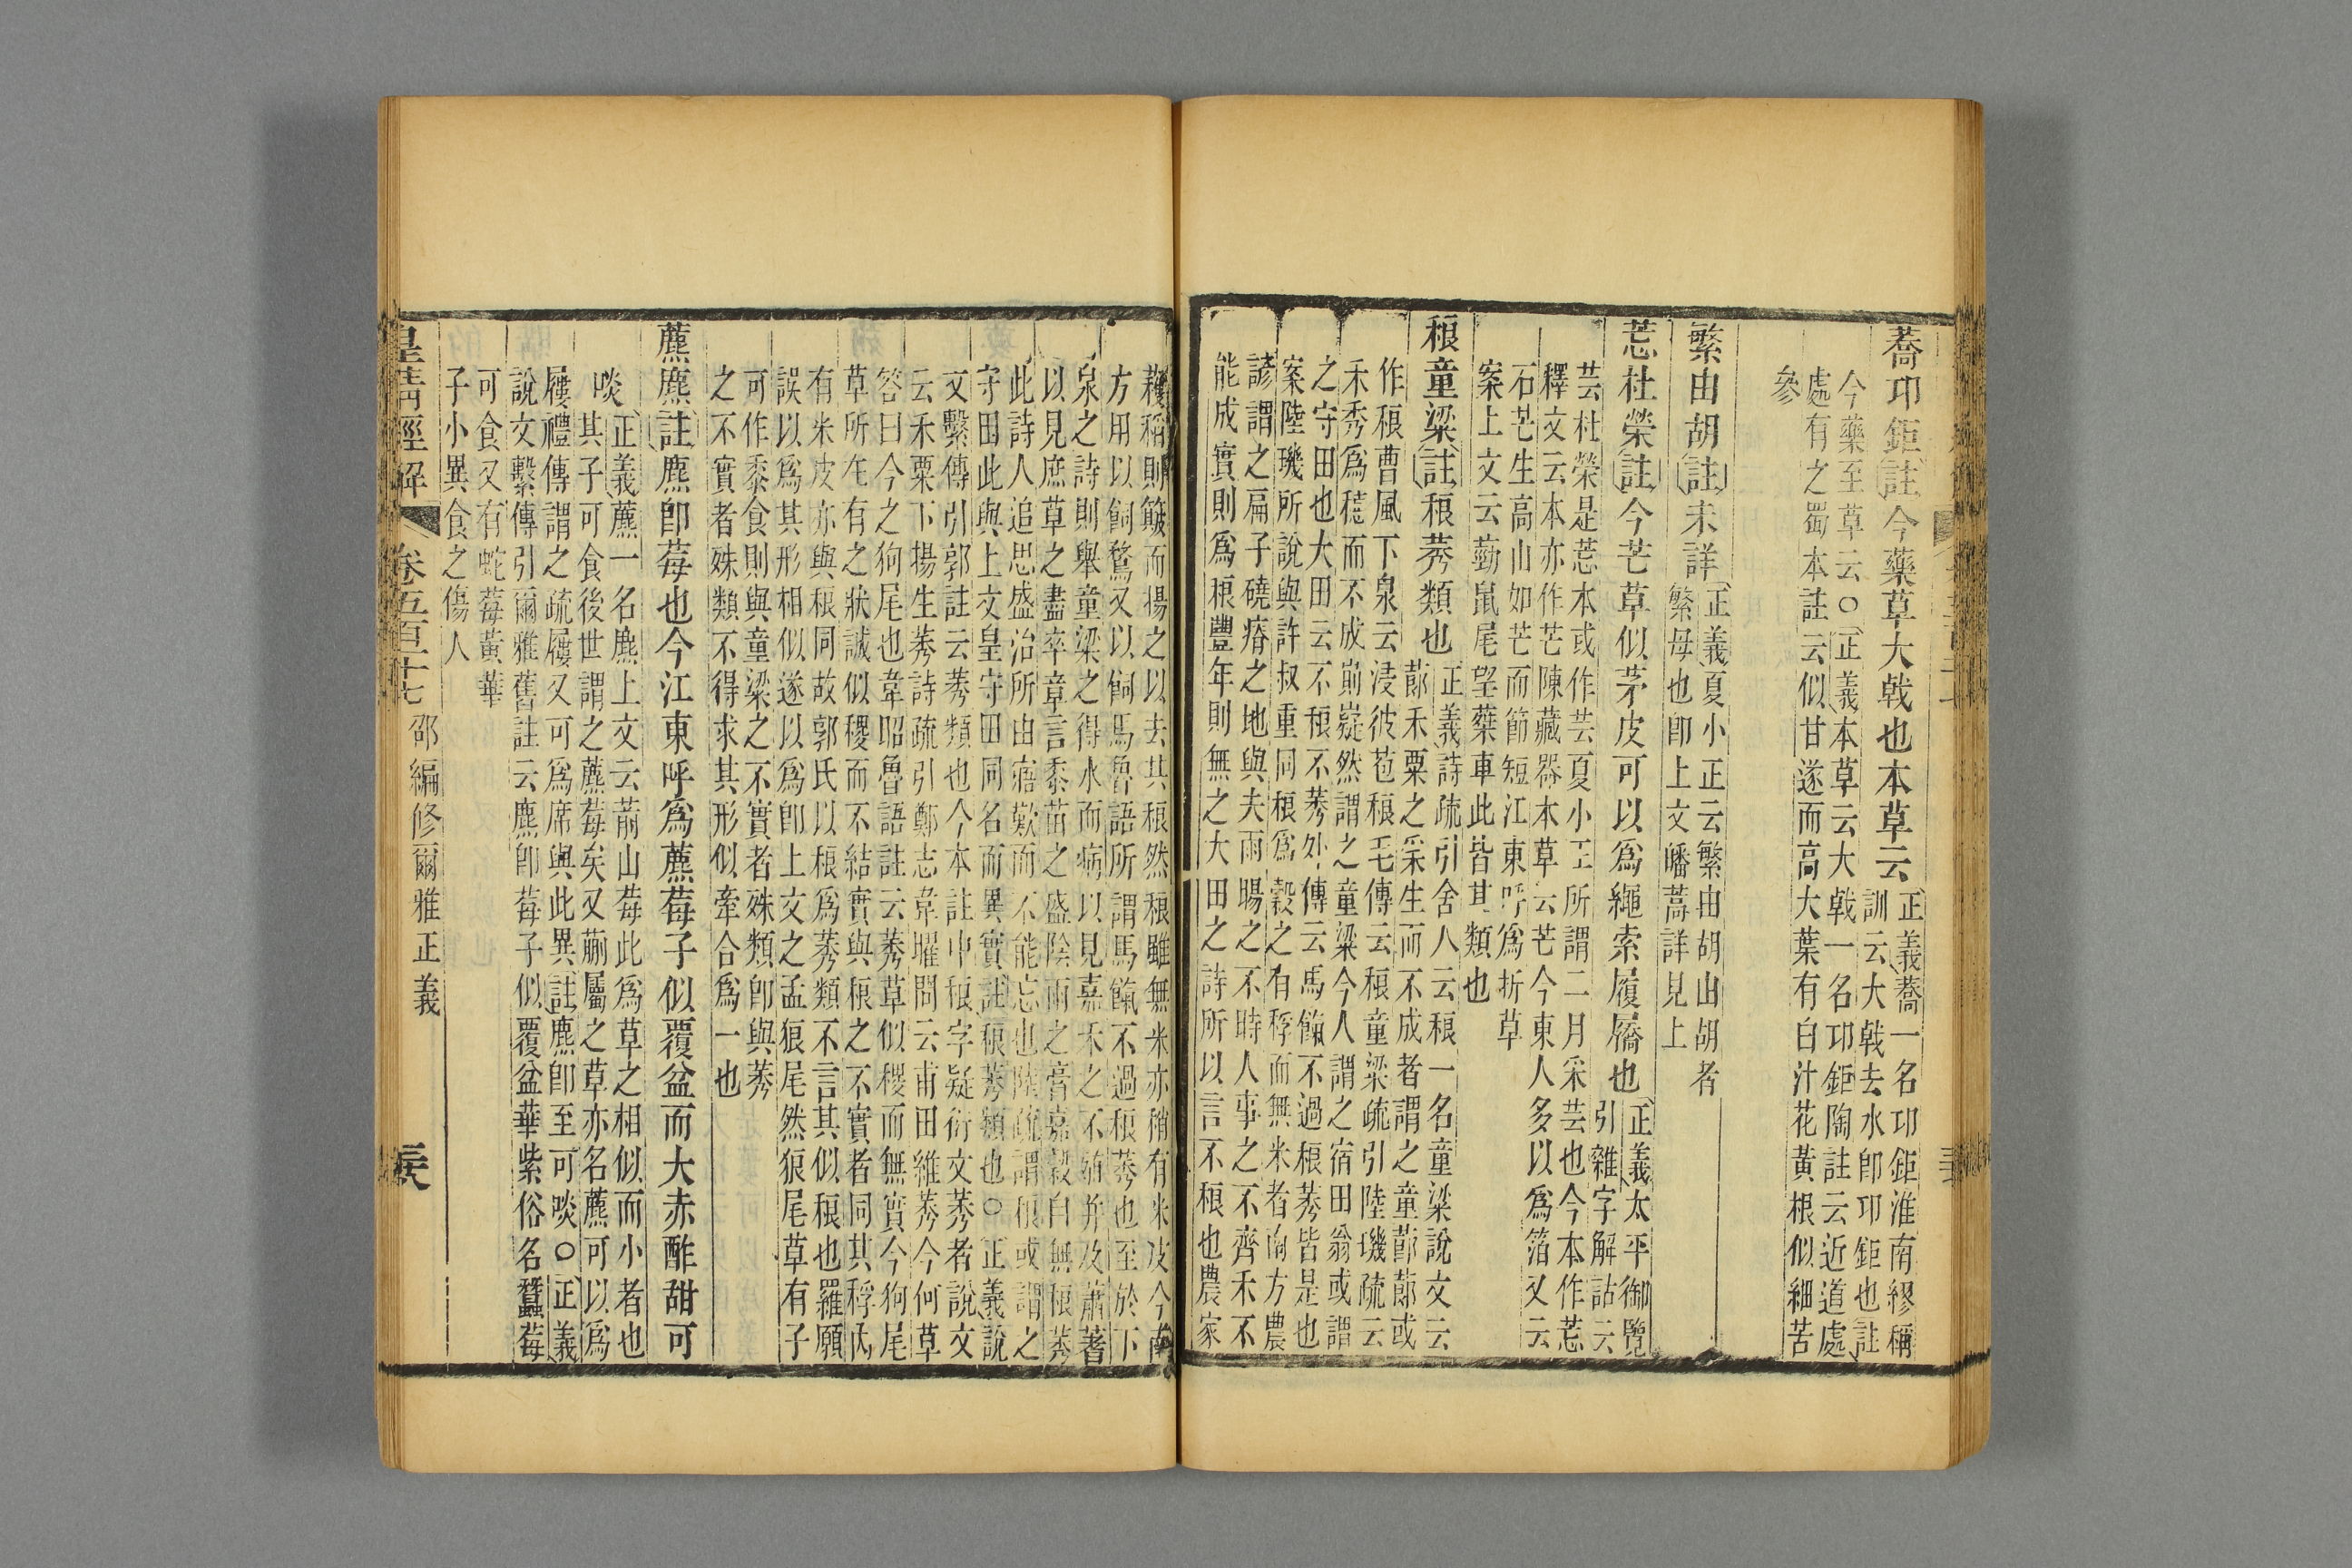 蕎邛鉅註今藥草大戟也本草云
正義蕎一名邛鉅淮南繆稱
訓云大戟去水卽邛鉅也註
今藥至草云○正義本草云大戟一名邛鉅陶註云近道處
處有之蜀本註云似甘遂而高大葉有白汁花黃根似細苦
參
繁由胡註未詳
正義夏小正云繁由胡由胡者
繁母也卽上文皤蒿詳見上
莣杜榮註今芒草似茅皮可以爲繩索履屩也
正義太平御覽
引雜字解詁云
芸杜榮是莣本或作芸夏小正所謂二月采芸也今本作莣
釋文云本亦作芒陳藏器本草云芒今東人多以爲箔又云
石芒生高山如芒而節短江東呼爲折草
案上文云葝鼠尾望藄車此皆其類也
稂童粱註稂莠類也
正義詩疏引舍人云稂一名童粱說文云
蓈禾粟之采生而不成者謂之童蓈蓈或
作稂曹風下泉云浸彼苞稂毛傳云稂童粱疏引陸璣疏云
禾秀爲穂而不成崱嶷然謂之童粱今人謂之宿田翁或謂
之守田也大田云不稂不莠外傳云馬餼不過稂莠皆是也
案陸璣所說與許叔重同稂爲穀之有稃而無米者南方農
諺謂之扁子磽瘠之地與夫雨暘之不時人事之不齊禾不
能成實則爲稂豐年則無之大田之詩所以言不稂也農家
穫稻則簸而揚之以去其稂然稂雖無米亦稍有米皮今南
方用以飼鶩又以飼馬魯語所謂馬餼不過稂莠也至於下
泉之詩則舉童粱之得水而病以見嘉禾之不殖幷及蕭蓍
以見庶草之盡卒章言黍苗之盛陰雨之膏嘉穀自無稂莠
此詩人追思盛治所由寤歎而不能忘也陸疏謂稂或謂之
守田此與上文皇守田同名而異實註稂莠類也○正義說
文繫傳引郭註云莠類也今本註中稂字疑衍文莠者說文
云禾粟下揚生莠詩疏引鄭志韋曜問云甫田維莠今何草
答曰今之狗尾也韋昭魯語註云莠草似稷而無實今狗尾
草所在有之狀誠似稷而不結實與稂之不實者同其稃內
有米皮亦與稂同故郭氏以稂爲莠類不言其似稂也羅願
誤以爲其形相似遂以爲卽上文之孟狼尾然狼尾草有子
可作黍食則與童粱之不實者殊類卽與莠
之不實者殊類不得求其形似牽合爲一也
藨麃註麃卽莓也今江東呼爲藨莓子似覆盆而大赤酢甜可
啖
正義藨一名麃上文云葥山莓此爲草之相似而小者也
其子可食後世謂之藨莓矣又蔍屬之草亦名藨可以爲
屨禮傳謂之疏屨又可爲席與此異註麃卽至可啖○正義
說文繫傳引爾雅舊註云麃卽莓子似覆盆華紫俗名蠶莓
可食又有蛇莓黃華
子小異食之傷人
皇淸經解 卷五百十七 邵編修爾雅正義